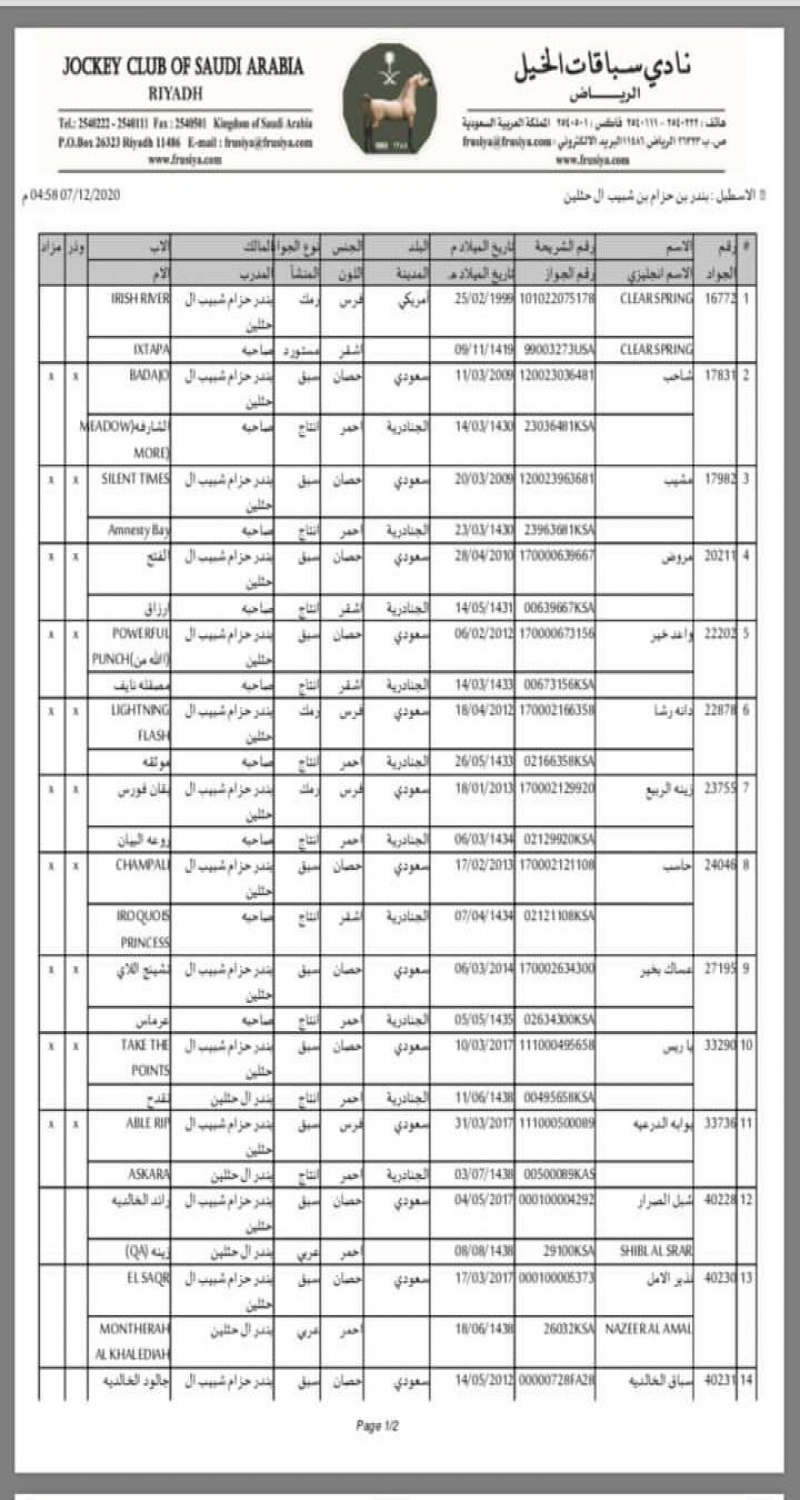 JOCKEY CLUB OF SAUDI ARABIA
RIYADH
Tel.: 2540222 - 2540111 Fax : 2540501 Kingdom of Saudi Arabia
P.O.Box 26323 Riyadh 11486 E-mail : frusiya@frusiya.com
www.frusiya.com
نادي سباقات الخيل
الرياض
هاتف : ٢٥٤٠٢٢٢ - ٢٥٤٠١١١ فاكس : ٢٥٤٠٥٠١ المملكة العربية السعودية
ص.ب ٢٦٣٢٣ الرياض ١١٤٨٦ البريد الالكتروني : frusiya@frusiya.com
www.frusiya.com
الاسطبل : بندر بن حزام بن شبيب ال حثلين
07/12/2020 04:58 م
# رقم الاسم رقم الشريحة تاريخ الميلاد م البلد الجنس نوع الجواد المالك الاب وذر مزاد
الجواد الاسم انجليزي رقم الجواز تاريخ الميلاد هـ المدينة اللون المنشأ المدرب الام
1 16772 CLEAR SPRING 101022075178 25/02/1999 أمريكي فرس رمك بندر حزام شبيب ال IRISH RIVER
حثلين
CLEAR SPRING 99003273USA 09/11/1419 اشقر مستورد صاحبه IXTAPA
2 17831 شاحب 120023036481 11/03/2009 سعودي حصان سبق بندر حزام شبيب ال BADAJO x x
حثلين
23036481KSA 14/03/1430 الجنادرية احمر انتاج صاحبه الشارفه(MEADOW
MORE)
3 17982 مشيب 120023963681 20/03/2009 سعودي حصان سبق بندر حزام شبيب ال SILENT TIMES x x
حثلين
23963681KSA 23/03/1430 الجنادرية احمر انتاج صاحبه Amnesty Bay
4 20211 مروض 170000639667 28/04/2010 سعودي حصان سبق بندر حزام شبيب ال الفتح x x
حثلين
00639667KSA 14/05/1431 الجنادرية اشقر انتاج صاحبه ارزاق
5 22202 واعد خير 170000673156 06/02/2012 سعودي حصان سبق بندر حزام شبيب ال POWERFUL x x
حثلين PUNCH(الله من)
00673156KSA 14/03/1433 الجنادرية اشقر انتاج صاحبه مصفله نايف
6 22878 دانه رشا 170002166358 18/04/2012 سعودي فرس رمك بندر حزام شبيب ال LIGHTNING x x
حثلين FLASH
02166358KSA 26/05/1433 الجنادرية احمر انتاج صاحبه مولقه
7 23755 زينه الربيع 170002129920 18/01/2013 سعودي فرس رمك بندر حزام شبيب ال بقان فورس x x
حثلين
02129920KSA 06/03/1434 الجنادرية احمر انتاج صاحبه روعه البيان
8 24046 حاسب 170002121108 17/02/2013 سعودي حصان سبق بندر حزام شبيب ال CHAMPALI x x
حثلين
02121108KSA 07/04/1434 الجنادرية اشقر انتاج صاحبه IROQUOIS
PRINCESS
9 27195 عساك بخير 170002634300 06/03/2014 سعودي حصان سبق بندر حزام شبيب ال تشينج اللاي x x
حثلين
02634300KSA 05/05/1435 الجنادرية احمر انتاج صاحبه عرماس
10 33290 يا ريس 111000495658 10/03/2017 سعودي حصان سبق بندر حزام شبيب ال TAKE THE x x
حثلين POINTS
00495658KSA 11/06/1438 الجنادرية احمر انتاج بندر ال حثلين تقدح
11 33736 بوابه الدرعيه 111000500089 31/03/2017 سعودي فرس سبق بندر حزام شبيب ال ABLE RIP x x
حثلين
00500089KAS 03/07/1438 الجنادرية احمر انتاج بندر ال حثلين ASKARA
12 40228 شبل الصرار 000100004292 04/05/2017 سعودي حصان سبق بندر حزام شبيب ال رائد الخالديه
حثلين
SHIBL AL SRAR 29100KSA 08/08/1438 احمر عربي بندر ال حثلين زينه (QA)
13 40230 نذير الامل 000100005373 17/03/2017 سعودي حصان سبق بندر حزام شبيب ال EL SAQR
حثلين
NAZEER AL AMAL 26032KSA 18/06/1438 احمر عربي بندر ال حثلين MONTHERAH
AL KHALEDIAH
14 40231 سباق الخالديه 00000728FA28 14/05/2012 سعودي حصان سبق بندر حزام شبيب ال جالود الخالديه
Page 1/2